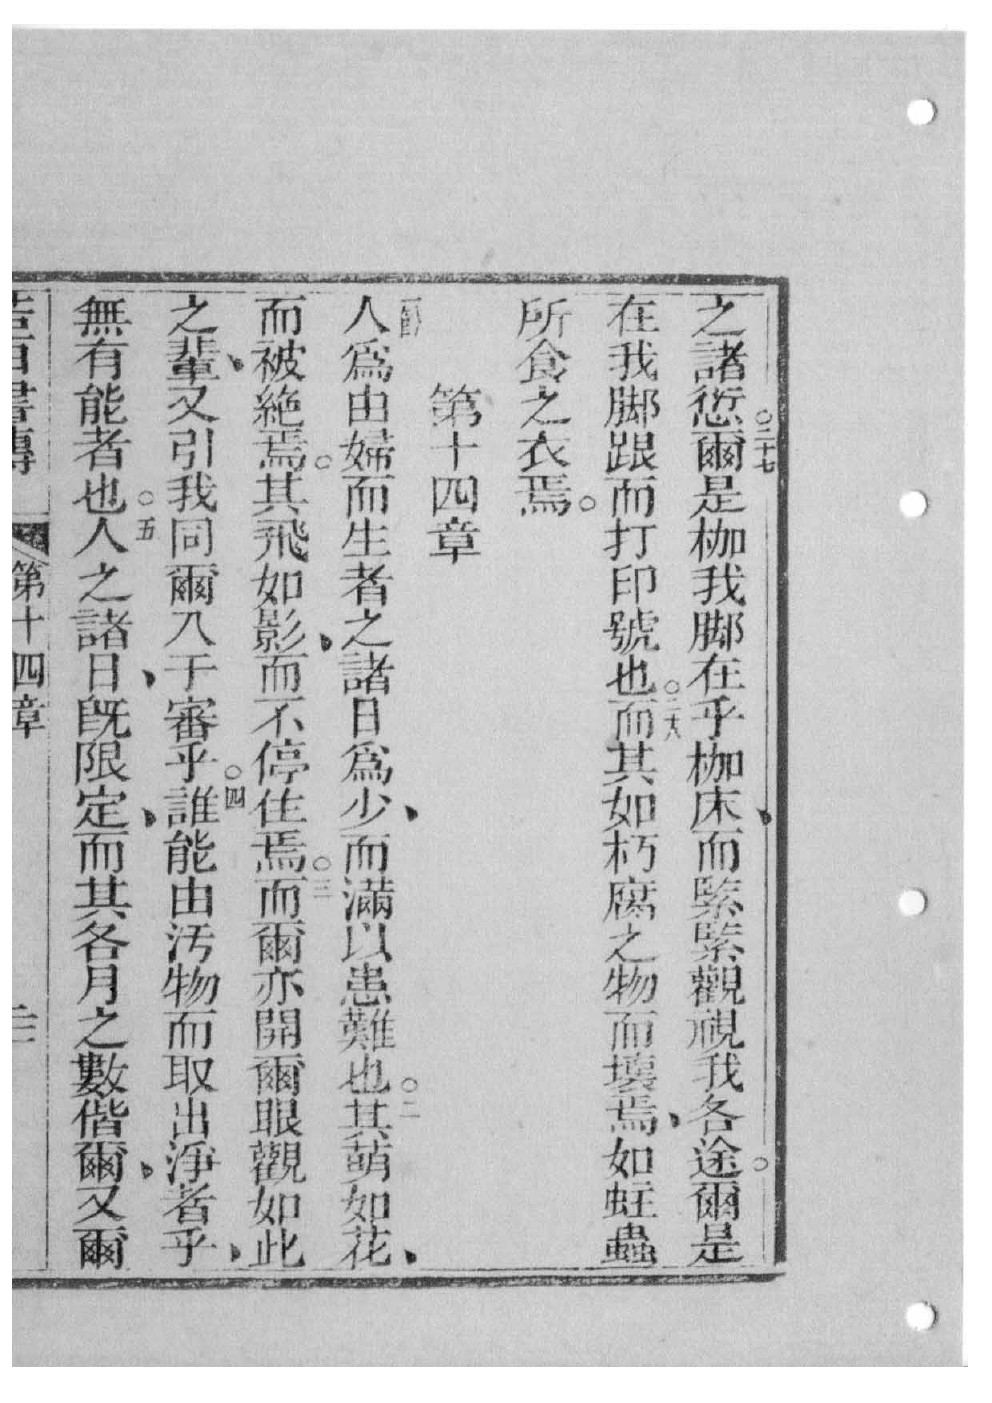 之諸愆○二十七爾是枷我脚在乎枷床、而緊緊觀視我各途○爾是
在我脚跟而打印號也○二十八而其如朽腐之物而壞焉、如蛀蟲
所食之衣焉○
第十四章
人爲由婦而生者之諸日爲少、而滿以患難也○二其萌如花、
而被絶焉○其飛如影、而不停住焉○三而爾亦開爾眼觀如此
之輩、又引我同爾入于審乎○四誰能由污物而取出淨者乎、
無有能者也○五人之諸日、旣限定、而其各月之數偕爾、又爾
第十四章